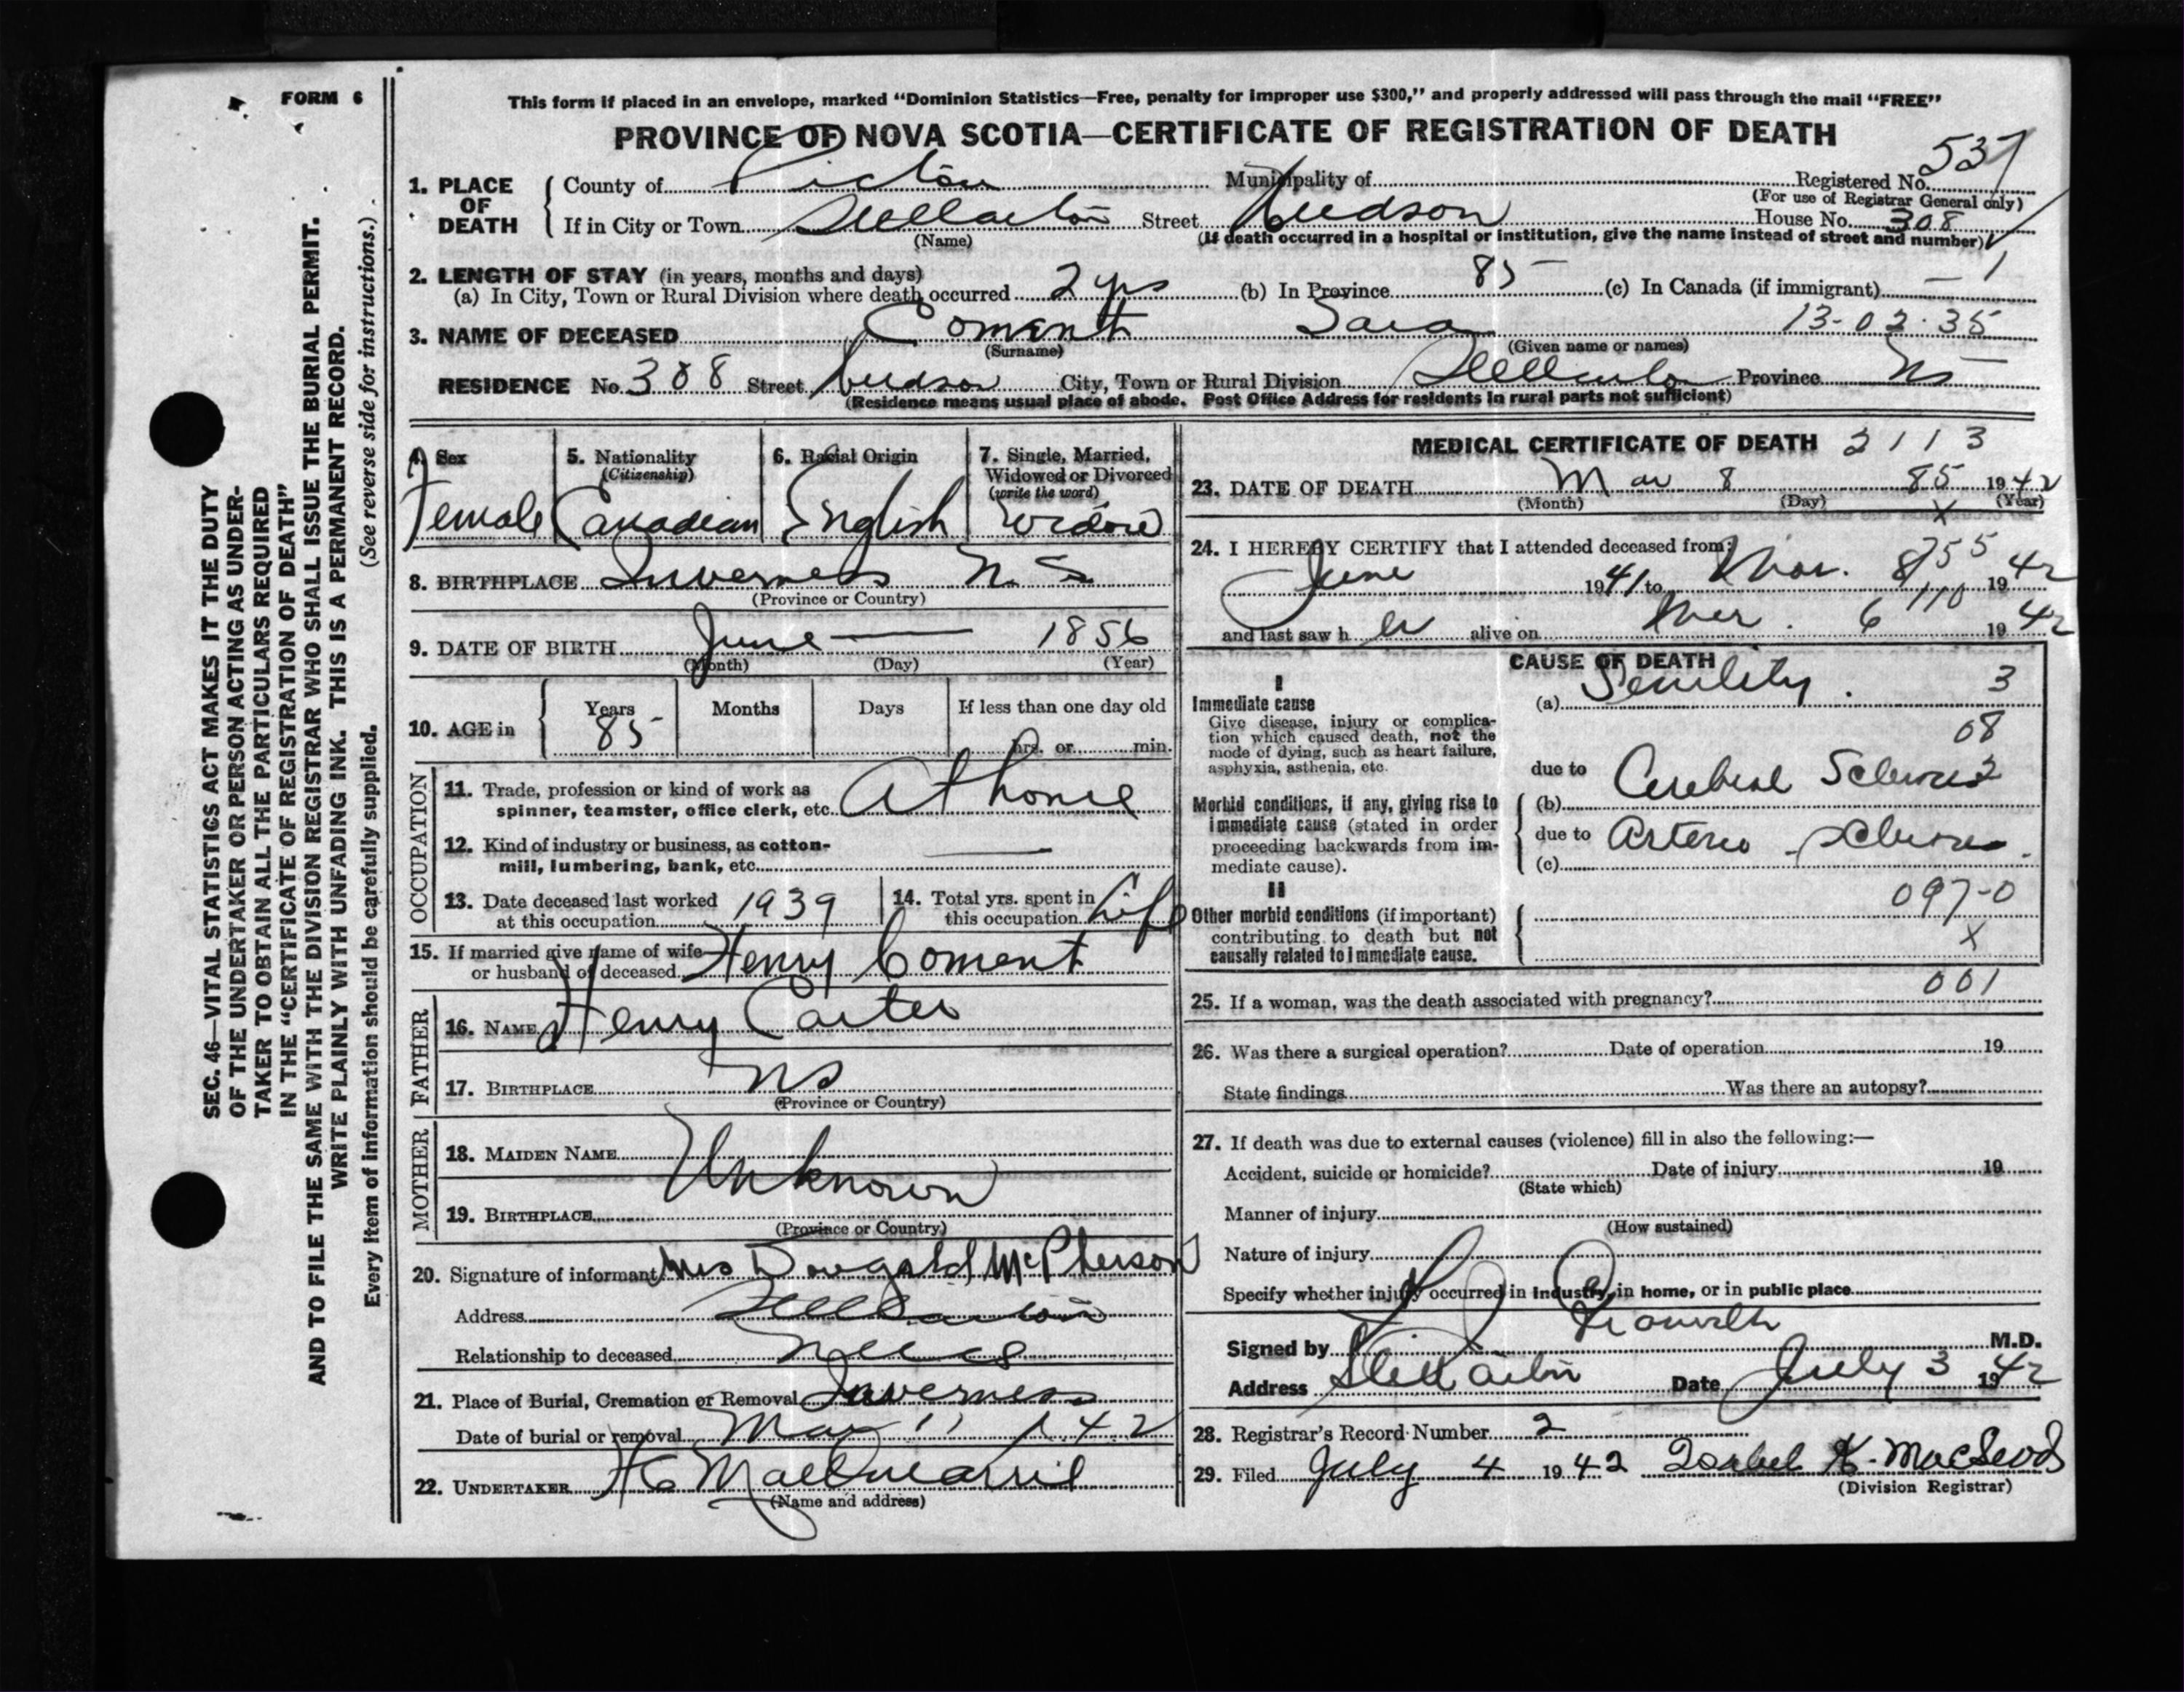 FORM 6
This form if placed in an envelope, marked "Dominion Statistics—Free, penalty for improper use $300," and properly addressed will pass through the mail "FREE"
PROVINCE OF NOVA SCOTIA—CERTIFICATE OF REGISTRATION OF DEATH
537
1. PLACE OF DEATH County of Pictou Municipality of Registered No.
(For use of Registrar General only)
If in City or Town Stellarton Street Hudson House No. 308
(Name) (If death occurred in a hospital or institution, give the name instead of street and number)
2. LENGTH OF STAY (in years, months and days)
(a) In City, Town or Rural Division where death occurred 2 yrs (b) In Province 85 (c) In Canada (if immigrant) — 1
3. NAME OF DECEASED Coment Sara 13-02-35
(Surname) (Given name or names)
RESIDENCE No. 308 Street Hudson City, Town or Rural Division Stellarton Province NS
(Residence means usual place of abode. Post Office Address for residents in rural parts not sufficient)
4. Sex 5. Nationality 6. Racial Origin 7. Single, Married,
(Citizenship) Widowed or Divorced
(write the word)
Female Canadian English Widow
8. BIRTHPLACE Inverness N. S.
(Province or Country)
9. DATE OF BIRTH June — 1856
(Month) (Day) (Year)
10. AGE in Years Months Days If less than one day old
85 hrs. or min.
OCCUPATION
11. Trade, profession or kind of work as
spinner, teamster, office clerk, etc. At home
12. Kind of industry or business, as cotton-
mill, lumbering, bank, etc. —
13. Date deceased last worked 14. Total yrs. spent in
at this occupation 1939 this occupation Life
15. If married give name of wife
or husband of deceased Henry Coment
FATHER
16. NAME Henry Carter
17. BIRTHPLACE NS
(Province or Country)
MOTHER
18. MAIDEN NAME
Unknown
19. BIRTHPLACE
(Province or Country)
20. Signature of informant Mrs Dougald McPherson
Address Stellarton
Relationship to deceased Niece
21. Place of Burial, Cremation or Removal Inverness
Date of burial or removal Mar 11 1942
22. UNDERTAKER
(Name and address)
MEDICAL CERTIFICATE OF DEATH 2113
23. DATE OF DEATH Mar 8 85 1942
(Month) (Day) (Year)
X
24. I HEREBY CERTIFY that I attended deceased from:
June 1941 to Mar. 8 1942
and last saw her alive on Mar. 6 1942
CAUSE OF DEATH
I
Immediate cause
Give disease, injury or complica-
tion which caused death, not the
mode of dying, such as heart failure,
asphyxia, asthenia, etc.
(a) Senility. 3
08
due to
(b) Cerebral Sclerosis 2
Morbid conditions, if any, giving rise to
immediate cause (stated in order
proceeding backwards from im-
mediate cause).
due to
(c) Arterio-sclerosis.
II
097-0
Other morbid conditions (if important)
contributing to death but not
causally related to immediate cause.
X
001
25. If a woman, was the death associated with pregnancy?
26. Was there a surgical operation? Date of operation 19
State findings Was there an autopsy?
27. If death was due to external causes (violence) fill in also the following:—
Accident, suicide or homicide? Date of injury 19
(State which)
Manner of injury
(How sustained)
Nature of injury
Specify whether injury occurred in industry, in home, or in public place
Signed by M.D.
Address Stellarton Date July 3 1942
28. Registrar's Record Number 2
29. Filed July 4 1942 Isabel K. MacLeod
(Division Registrar)
SEC. 46—VITAL STATISTICS ACT MAKES IT THE DUTY
OF THE UNDERTAKER OR PERSON ACTING AS UNDER-
TAKER TO OBTAIN ALL THE PARTICULARS REQUIRED
IN THE "CERTIFICATE OF REGISTRATION OF DEATH"
AND TO FILE THE SAME WITH THE DIVISION REGISTRAR WHO SHALL ISSUE THE BURIAL PERMIT.
WRITE PLAINLY WITH UNFADING INK. THIS IS A PERMANENT RECORD.
Every item of information should be carefully supplied. (See reverse side for instructions.)